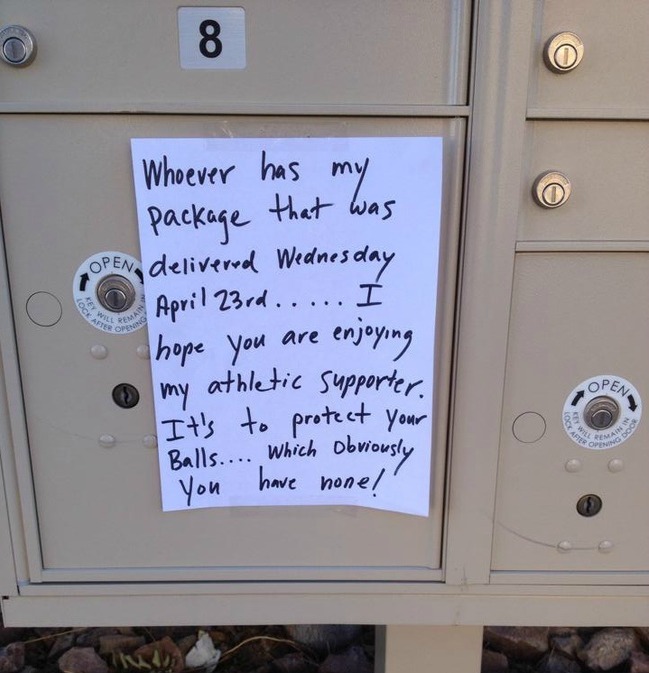 8
Whoever has my
package that was
delivered Wednesday
April 23rd...... I
hope you are enjoying
my athletic supporter.
It's to protect your
Balls.... which obviously
you have none!
OPEN
KEY WILL REMAIN IN
LOCK AFTER OPENING
OPEN
KEY WILL REMAIN IN
LOCK AFTER OPENING DOOR